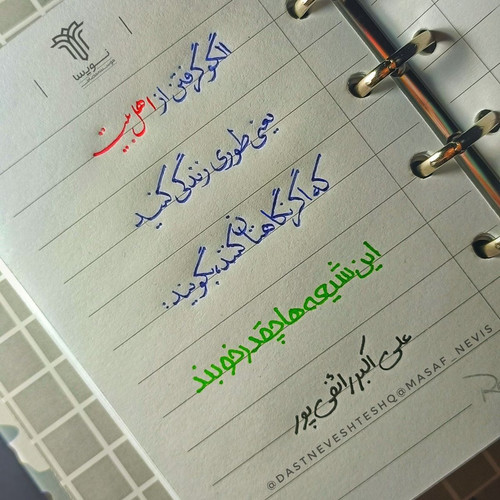 نویسا
الگو گرفتن از اهل بیت
یعنی طوری زندگی کنید
که اگر نگاهتان کنند، بگویند:
این شیعه ها چقدر خوبند
علی اکبر رائفی پور
@DASTNEVESHTESHQ@MASAF_NEVIS